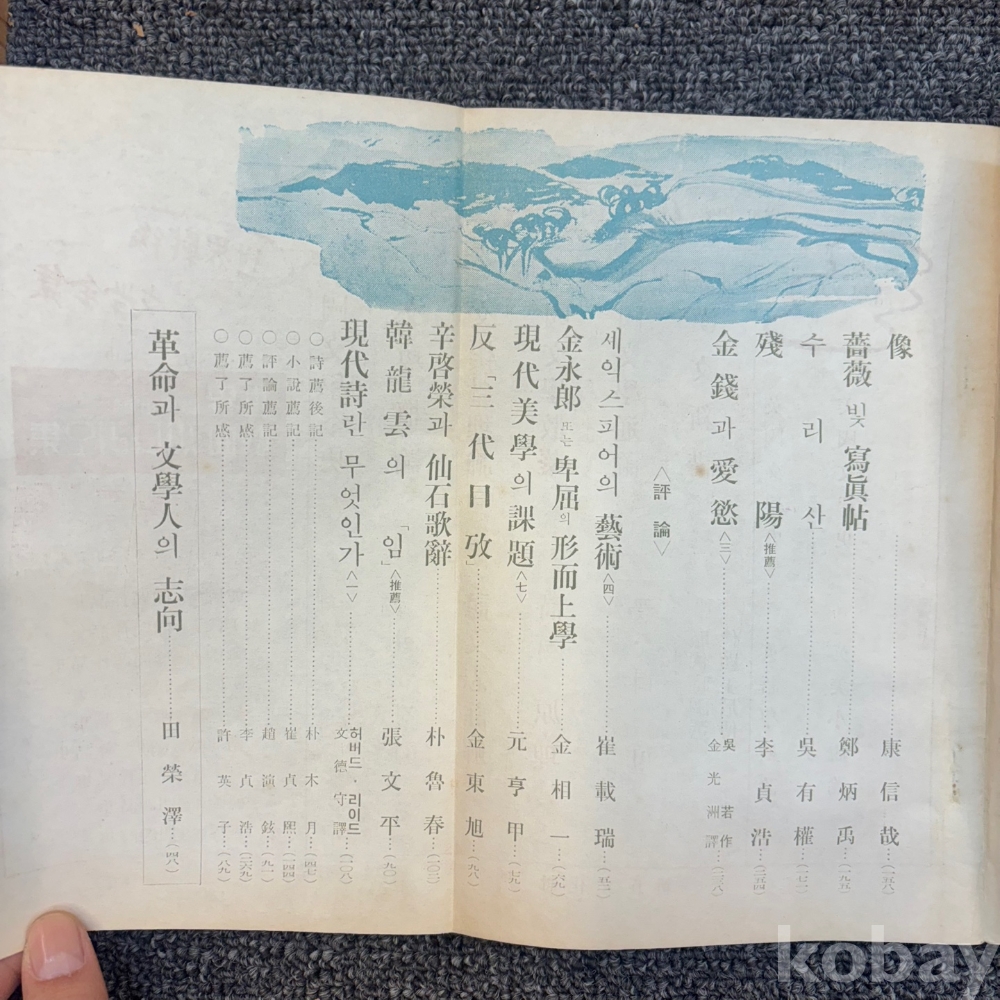 像……康信哉…(一五八)
薔薇빛 寫眞帖……鄭炳禹…(一九五)
수리산……吳有權…(一七一)
殘陽<推薦>……李貞浩…(二五四)
金錢과 愛慾<三>……吳若作 金光洲譯…(二三八)
<評論>
셰익스피어의 藝術<四>……崔載瑞…(五二)
金永郎 또는 卑屈의 形而上學……金相一…(六九)
現代美學의 課題<七>……元亨甲…(七九)
反「三代目攷」……金東旭…(九八)
辛啓榮과 仙石歌辭……朴魯春…(一〇三)
韓龍雲의 「임」<推薦>……張文平…(九〇)
現代詩란 무엇인가<一>……허버드·리이드 文德守譯…(一〇八)
○詩薦後記……朴木月…(四七)
○小說薦記……崔貞熙…(一四四)
○評論薦記……趙演鉉…(九一)
○薦了所感……李貞浩…(二六九)
○薦了所感……許英子…(八九)
革命과 文學人의 志向……田榮澤…(四八)
kobay